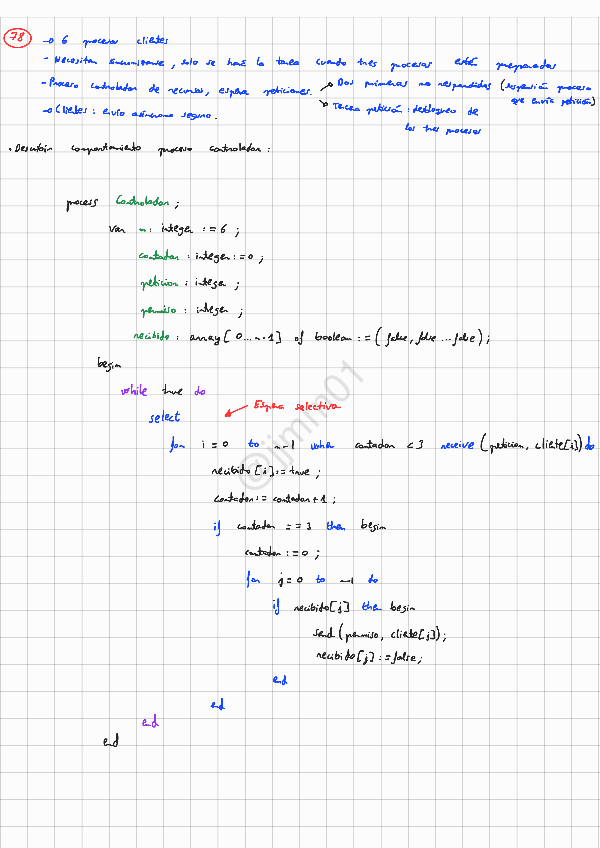 78
→ 6 procesos clientes
- Necesitan sincronizarse, solo se hará la tarea cuando tres procesos estén preparados
- Proceso controlador de recursos, espera peticiones. → Dos primeras no respondidas (suspensión proceso que envía petición)
→ Tercera petición: desbloqueo de los tres procesos
→ Clientes: envío asíncrono seguro.
• Describir comportamiento proceso controlador:
process Controlador;
var n: integer := 6;
contador : integer := 0;
peticion : integer;
permiso : integer;
recibido : array[0...n-1] of boolean := (false, false ... false);
begin
while true do
select ← Espera selectiva
for i=0 to n-1 when contador <3 receive (peticion, cliente[i]) do
recibido[i]:=true;
contador:= contador+1;
if contador == 3 then begin
contador:=0;
for j=0 to n-1 do
if recibido[j] then begin
send(permiso, cliente[j]);
recibido[j]:=false;
end
end
end
end
@jjmm01